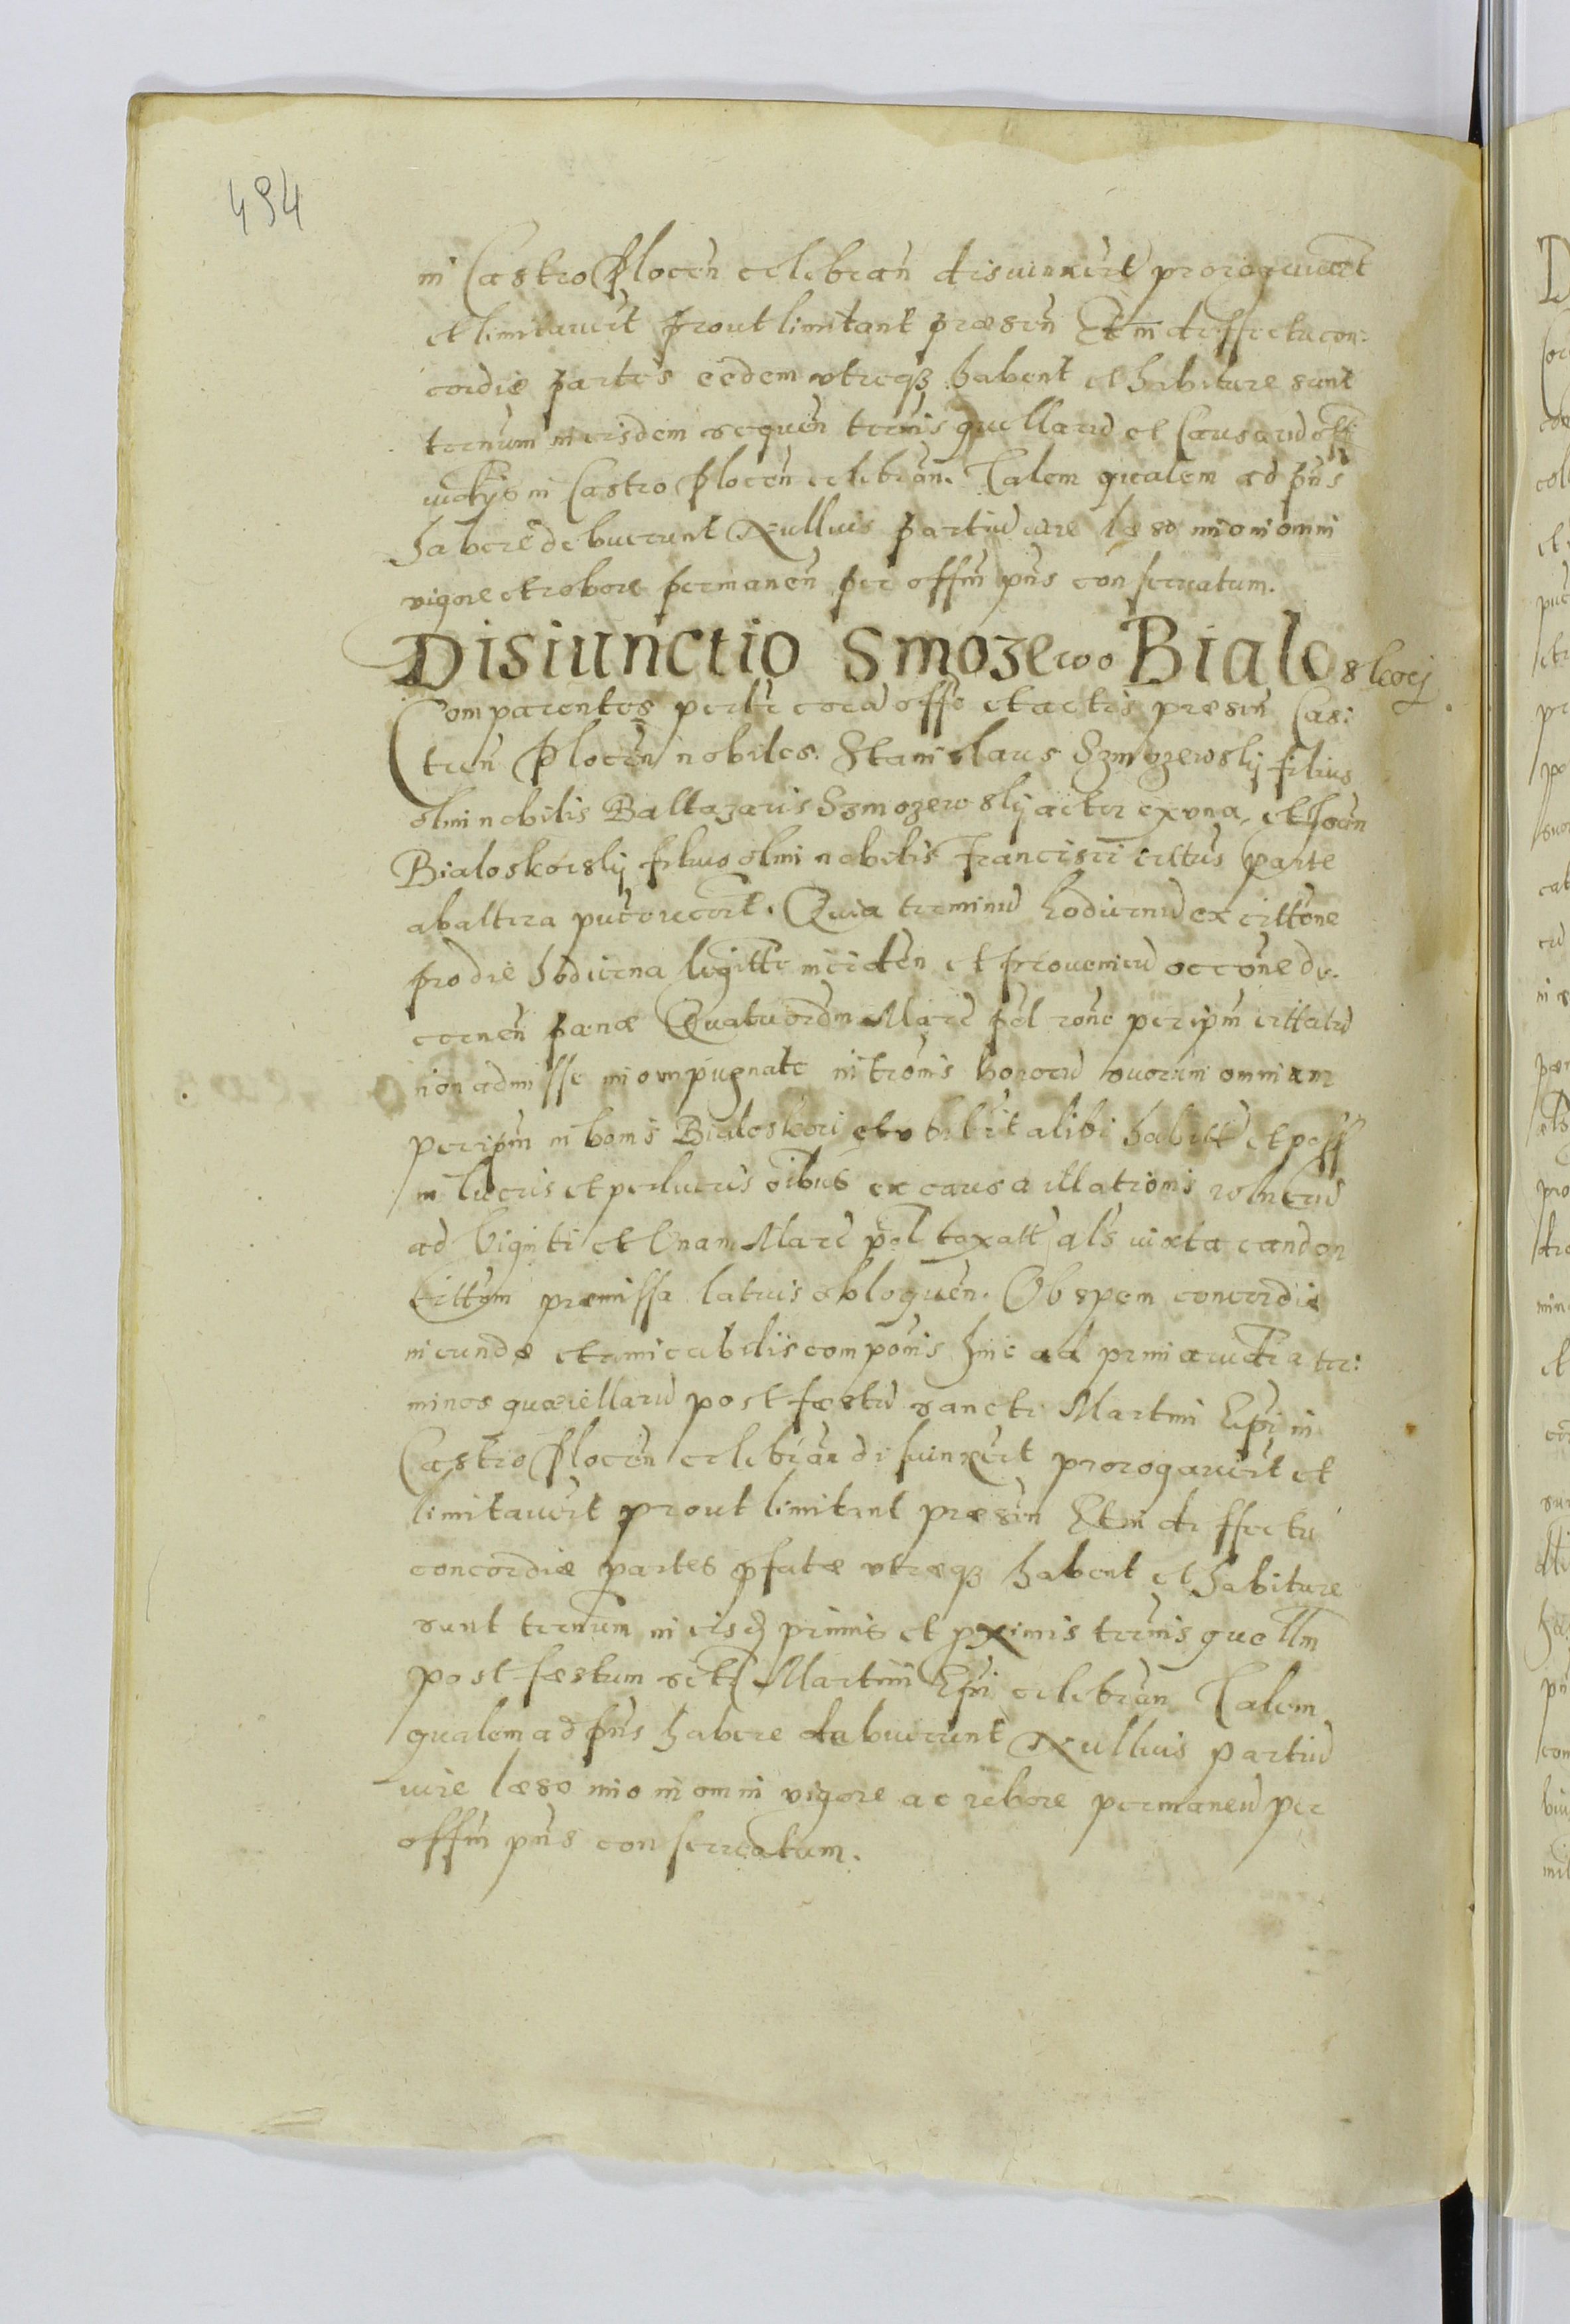 494
in Castro Plocen̄ celebran̄ disiunxert̄ prorogauert̄
et limitauert̄ prout limitant præsen̄ Et in deffectu con:
cordiæ partes eedem vtreqꝫ habent et habituræ sunt
ternum in eisdem sequen̄ termis quellarū et Causarū offi
iudijs in Castro Plocen̄ celebran̄. Talem qualem ad pn̄s
habere debuerunt Nullius partiū iure læso inio in omni
vigore et robore permanen̄ per offm̄ pn̄s conseruatum.
Disiunctio Smozewo Bialoskorÿ.
Comparentes perltr corā offo et actis præsen̄ Cas:
tren̄ Plocen̄ nobiles. Stanislaus Szmozewskÿ filius
olim nobilis Baltazaris Szmozewskÿ actor ex vna, et Joan̄
Bialoskorskÿ filius olim nobilis Francisci citt̄us parte
ab altera pucouert̄. Quia terminū hodiernū ex citt̄one
pro die hodierna legitt̄e inciden̄ et prouenien̄ occōne de-
cernen̄ pænæ Quatuordm̄ Marc̄ pol rōne per ipm̄ cittatū
non admissæ in oppugnate intromis̄ bonorū suorum omnium
per ipm̄ in bonis Bialoskori et vbilit̄ alibi habitt̄ et poss
in lucris et perlucris oibus ex causa illationis volnerū
ad Viginti et Vnam Marc̄ pol taxatt̄ als iuxta eandem
Citt̄om præmissa latius obloquen̄. Ob spem concordiæ
ineundæ et amicabilis compōnis hinc ad prmi aucta ter:
minos quærellarū post fæstū sancti Martini Epī in
Castro Plocen̄ celebran̄ disiunxert̄ prorogauert̄ et
limitauert̄ prout limitant præsen̄ Et in deffectu
concordiæ partes pfatæ vtræqꝫ habent et habituræ
sunt ternum in eisd̄ primis et pximis termis quellm̄
post fæstum scti Martini Epī celebran̄ Talem
qualem ad pn̄s habere debuerunt Nullius partiū
iure læso inio in omni vigore ac robore permanen̄ per
offm̄ pn̄s conseruatum.